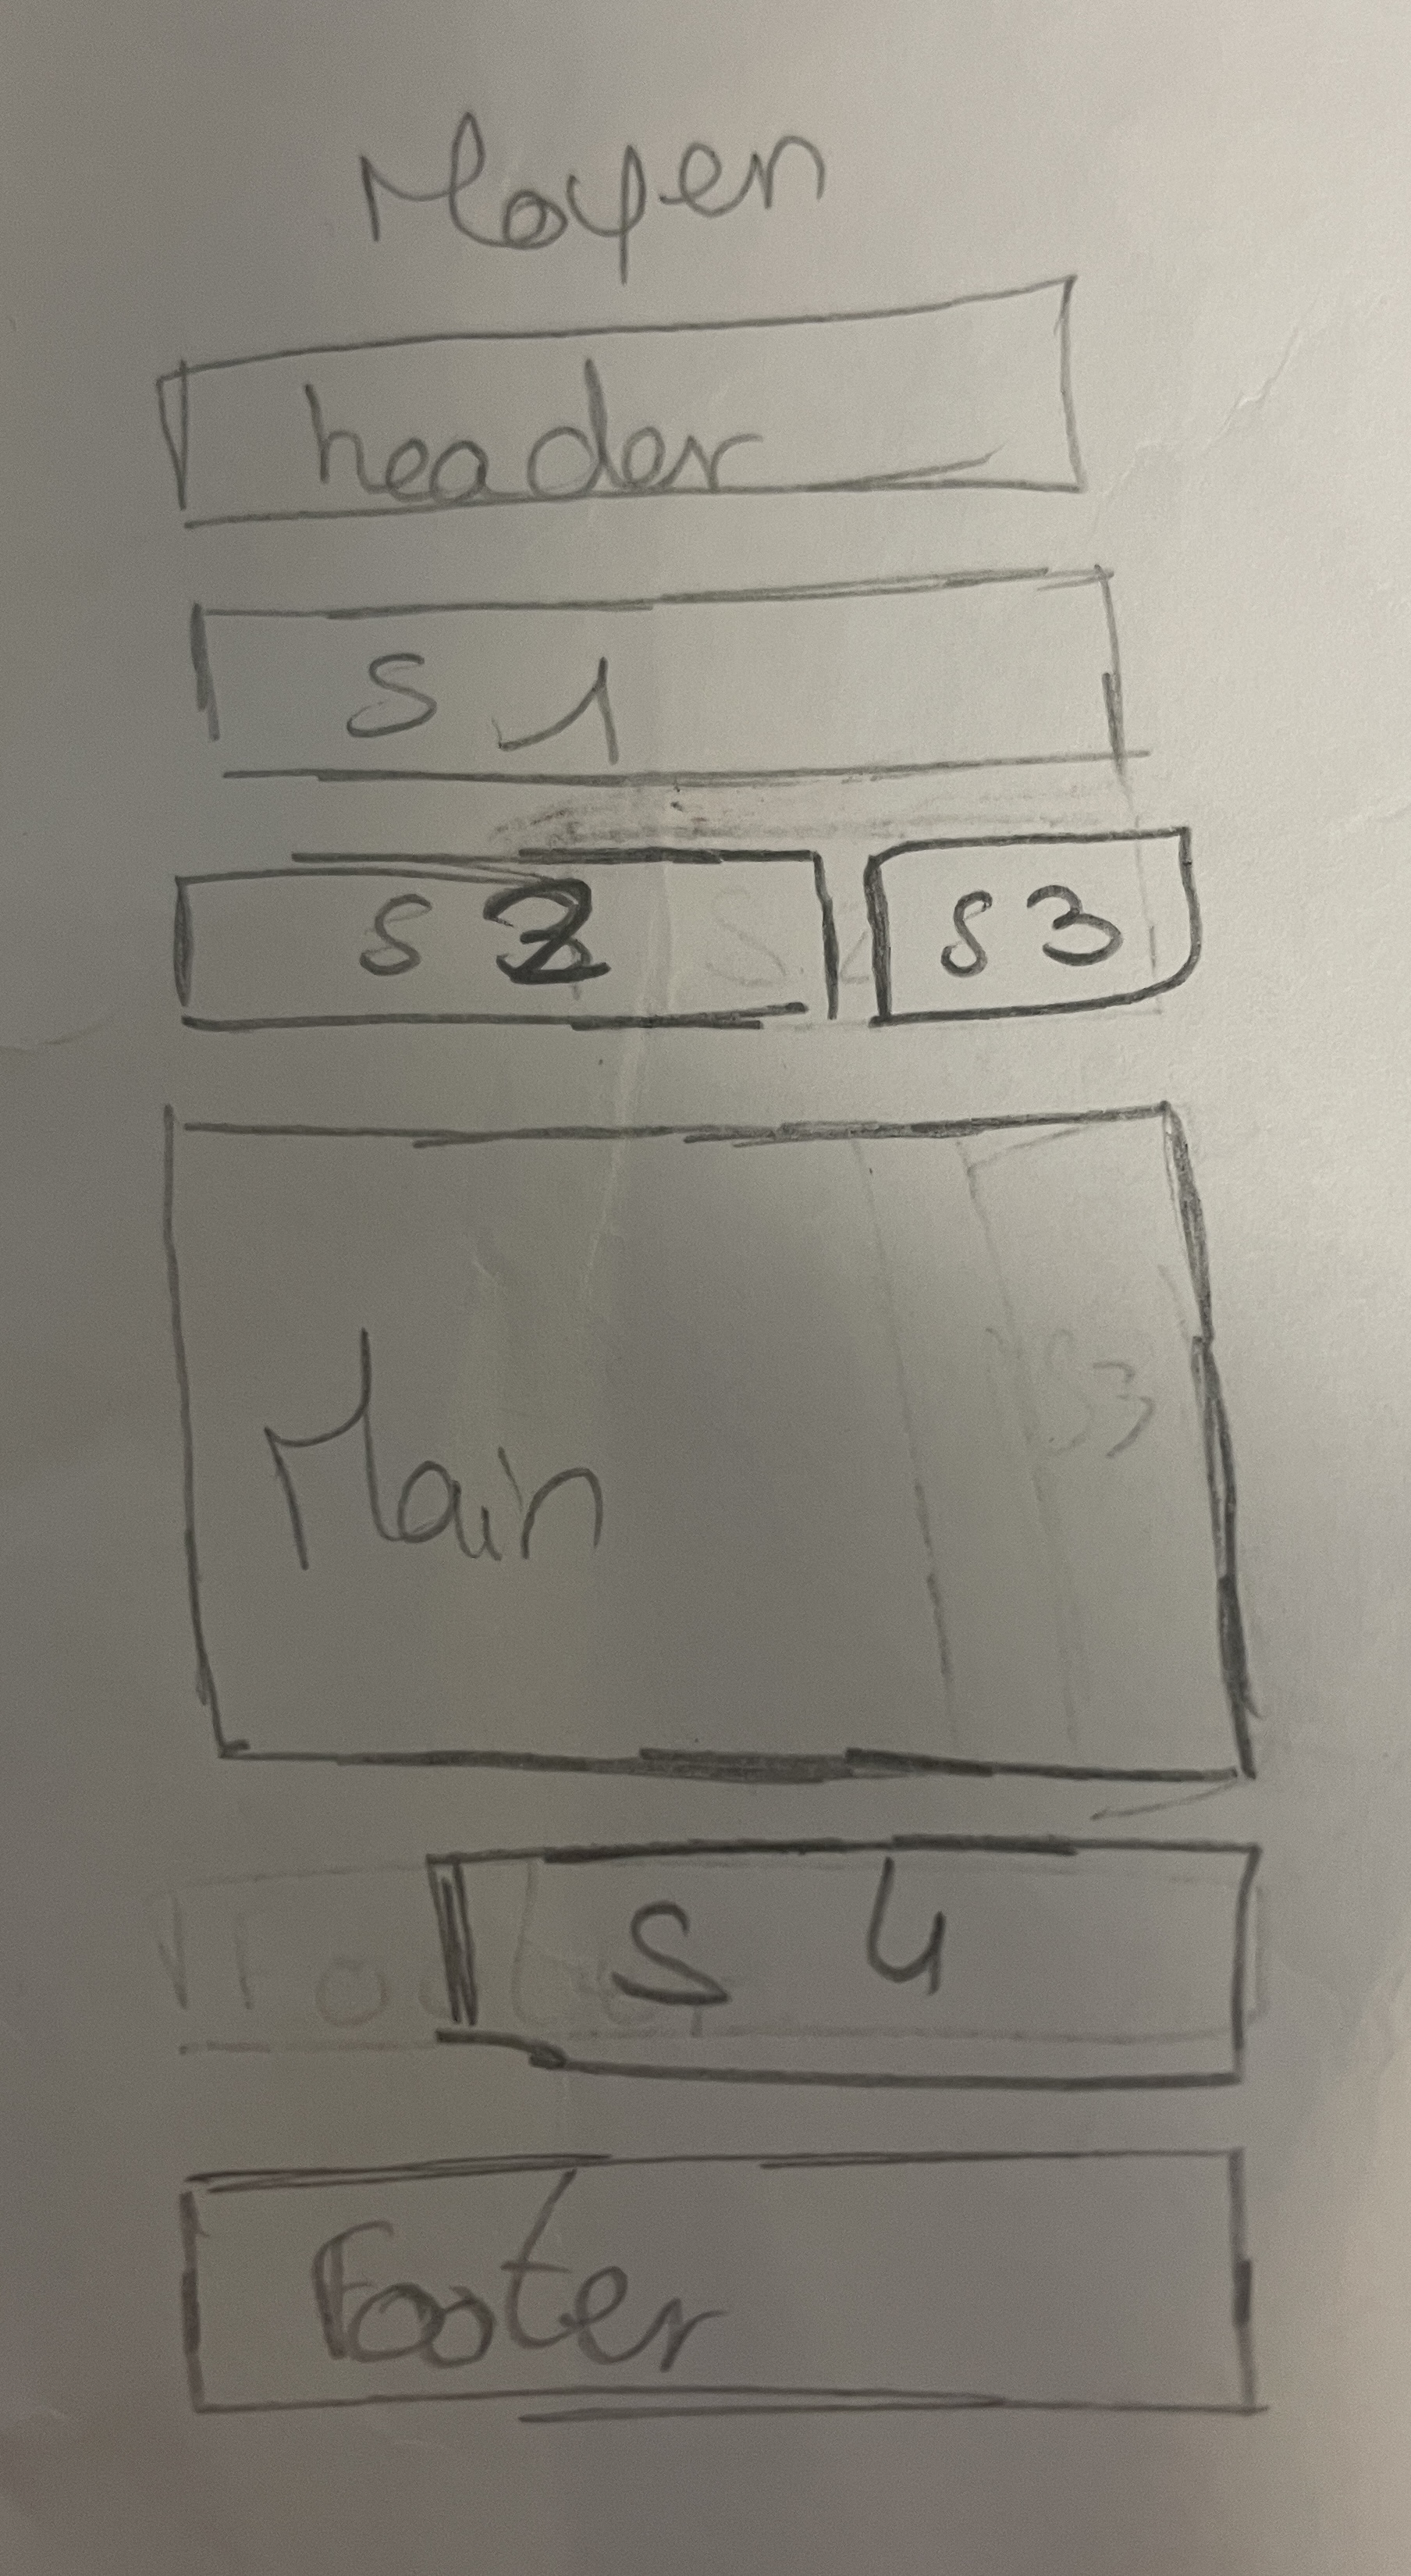 Moyen
header
S 1
S 2 S3
Main
S 4
Footer